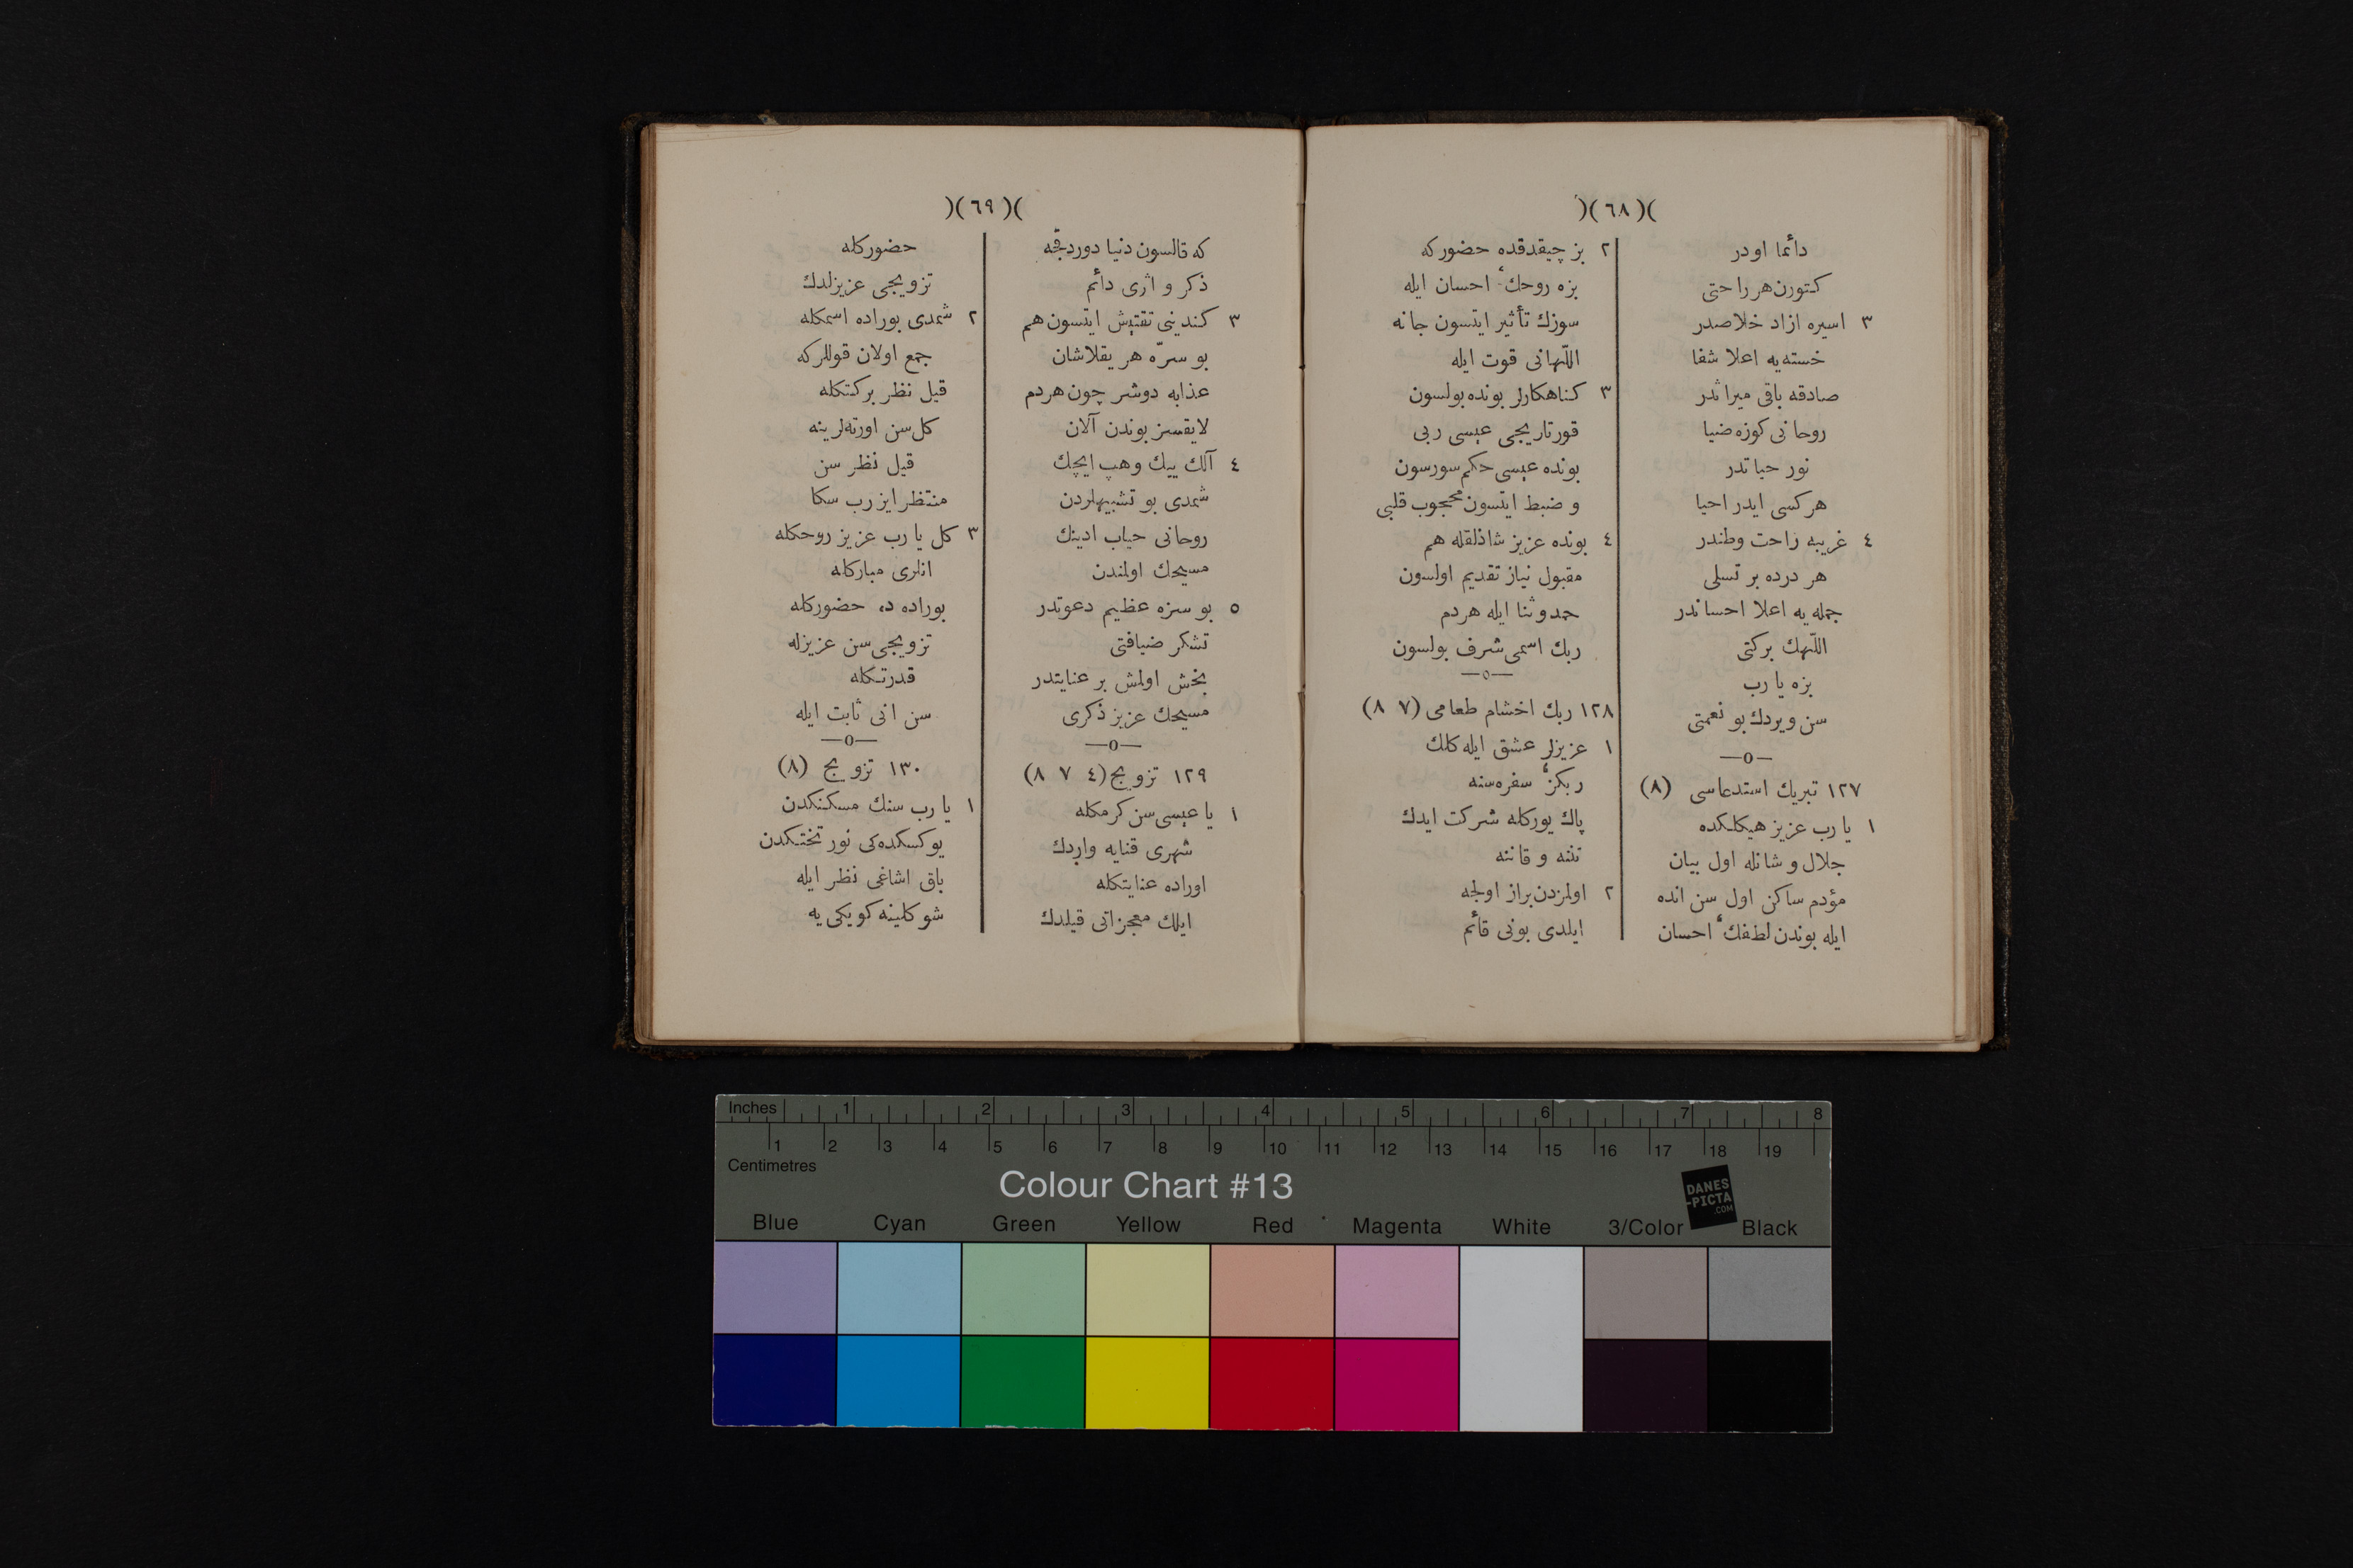 )( ٦٨ )(
دأئما اودر
كتورن هر راحتى
٣ اسيره ازاد خلاصدر
خسته‌يه اعلا شفا
صادقه باقى ميراثدر
روحانى كوزه ضيا
نور حياتدر
هركسى ايدر احيا
٤ غريبه راحت وطندر
هر درده بر تسلى
جمله يه اعلا احساندر
اللّهك بركتى
بزه يا رب
سن ويردك بو نعمتى
—٥—
١٢٧ تبريك استدعاسى (٨)
١ يا رب عزيز هيكلكده
جلال و شانله اول بيان
مؤدم ساكن اول سن انده
ايله بوندن لطفكُ احسان
٢ بز چيقدقده حضوركه
بزه روحكُ احسان ايله
سوزك تأثير ايتسون جانه
اللّهانى قوت ايله
٣ كناهكارلر بونده بولسون
قورتاريجى عيسى ربى
بونده عيسى حكم سورسون
و ضبط ايتسون محجوب قلبى
٤ بونده عزيز شاذلقله هم
مقبول نياز تقديم اولسون
حمدوثنا ايله هردم
ربك اسمى شرف بولسون
—٥—
١٢٨ ربك اخشام طعامى (٧ ٨)
١ عزيزلر عشق ايله كلك
ربكزُ سفره‌سنه
پاك يوركله شركت ايدك
تننه و قاننه
٢ اولمزدن براز اولجه
ايلدى بونى قأئم
)( ٦٩ )(
كه قالسون دنيا دوردقچه
ذكر و اثرى دأئم
٣ كندينى تفتيش ايتسون هم
بو سرّه هر يقلاشان
عذابه دوشر چون هردم
لايقسز بوندن آلان
٤ آلك ييك وهپ ايچك
شمدى بو تشبيهلردن
روحانى حياب ادينك
مسيحك اولمندن
٥ بو سزه عظيم دعوتدر
تشكر ضيافتى
بخش اولمش بر عنايتدر
مسيحك عزيز ذكرى
—٥—
١٢٩ تزويج (٤ ٧ ٨)
١ يا عيسى سن كرمكله
شهرى قنايه واردك
اوراده عنايتكله
ايلك معجزاتى قيلدك
حضوركله
تزويجى عزيزلدك
٢ شمدى بوراده اسمكله
جمع اولان قوللركه
قيل نظر بركتكله
كل سن اورته‌لرينه
قيل نظر سن
منتظر ايز رب سكا
٣ كل يا رب عزيز روحكله
انلرى مباركله
بوراده ده حضوركله
تزويجى سن عزيزله
قدرتكله
سن انى ثابت ايله
—٥—
١٣٠ تزويج (٨)
١ يا رب سنك مسكنكدن
يوكسكده‌كى نور تختكدن
باق اشاغى نظر ايله
شو كلينه كويكى يه
Inches 1 2 3 4 5 6 7 8
1 2 3 4 5 6 7 8 9 10 11 12 13 14 15 16 17 18 19
Centimetres
Colour Chart #13
DANES
-PICTA
.COM
Blue Cyan Green Yellow Red Magenta White 3/Color Black